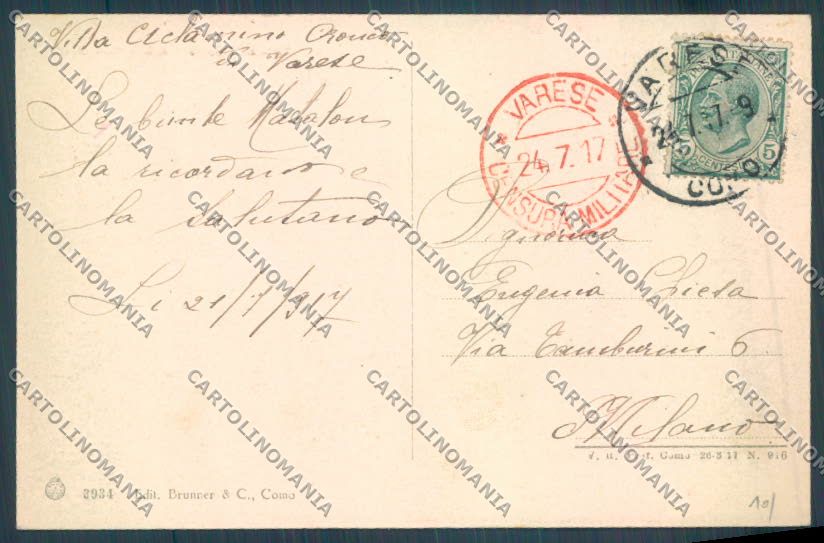 Villa Ciclamino Oronco
Varese
Le bimbe
la ricordano e
la salutano
Li 21/7/917
VARESE
24.7.17
CENSURA MILITARE
VARESE
COMO
CENT. 5
Signorina
Eugenia Chiesa
Via Tamburini 6
Milano
V. R. Pref. Como 26-3 17 N. 916
3934 Edit. Brunner & C., Como
10/
CARTOLINOMANIA